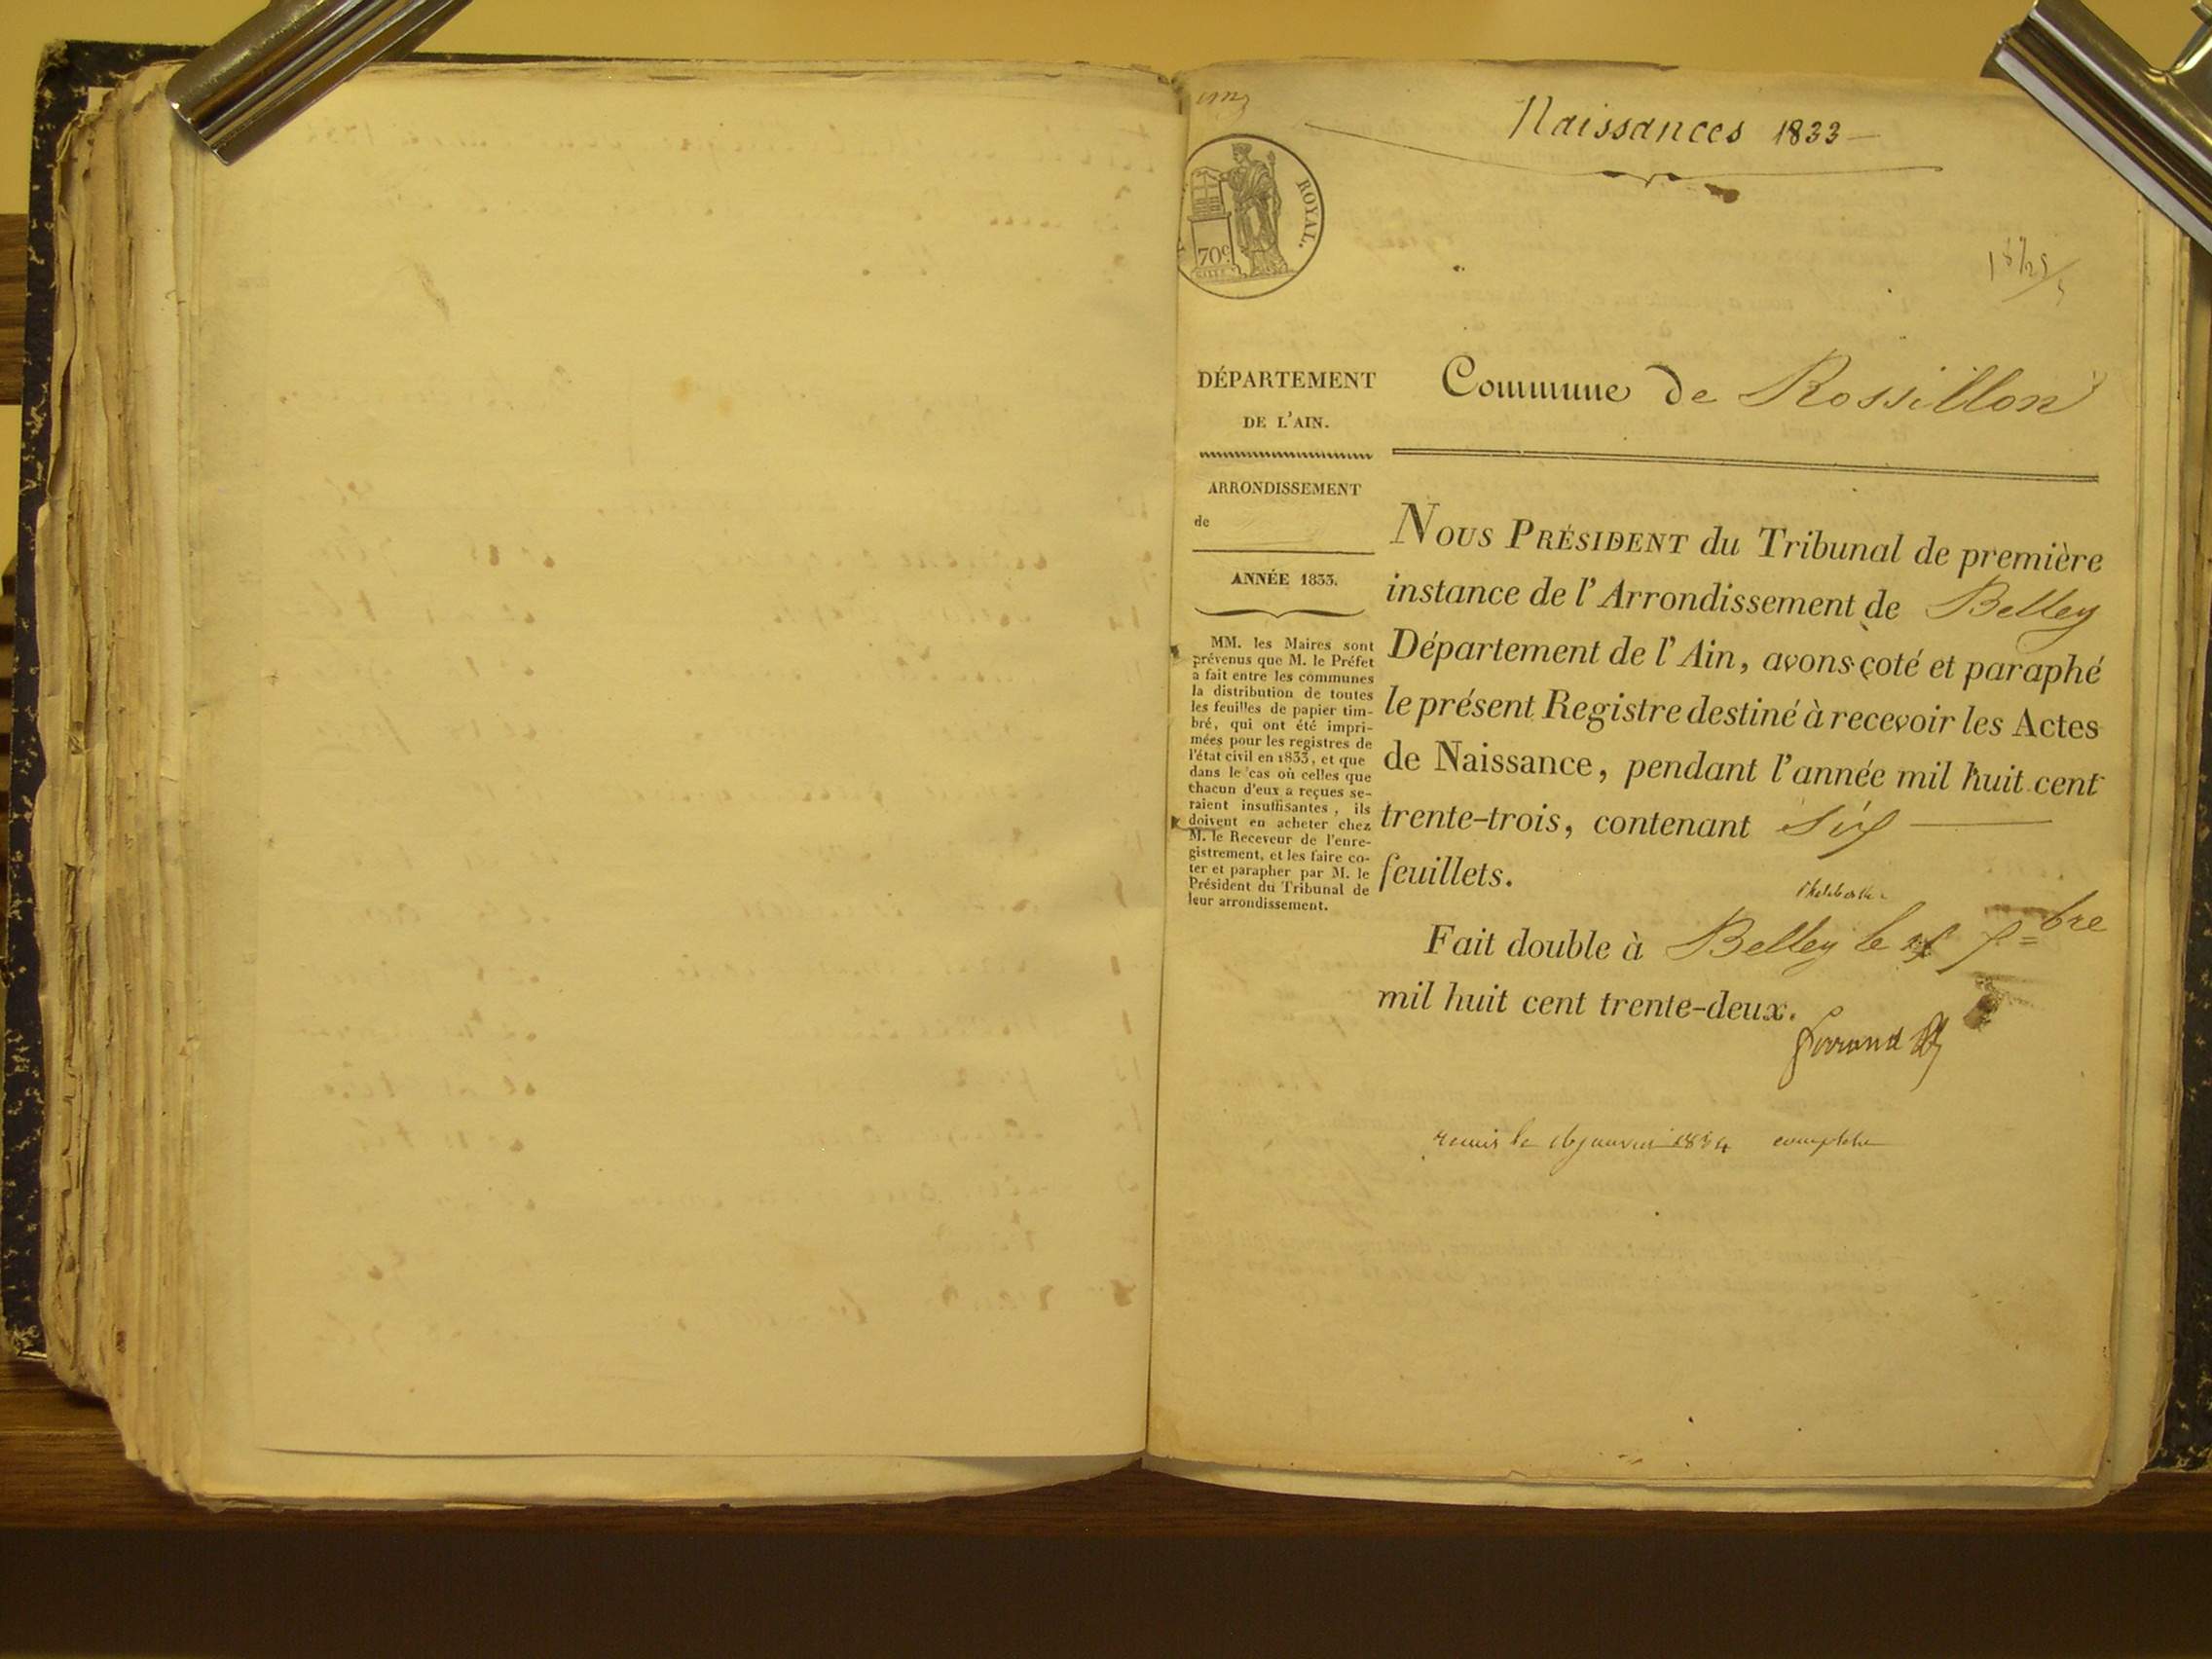 Naissances 1833
ROYAL.
70c
DÉPARTEMENT
DE L'AIN.
ARRONDISSEMENT
de
ANNÉE 1833.
MM. les Maires sont
prévenus que M. le Préfet
a fait entre les communes
la distribution de toutes
les feuilles de papier tim-
bré, qui ont été impri-
mées pour les registres de
l'état civil en 1833, et que
dans le cas où celles que
chacun d'eux a reçues se-
raient insuffisantes, ils
doivent en acheter chez
M. le Receveur de l'enre-
gistrement, et les faire co-
ter et parapher par M. le
Président du Tribunal de
leur arrondissement.
Commune de Rossillon
NOUS PRÉSIDENT du Tribunal de première
instance de l'Arrondissement de Belley
Département de l'Ain, avons coté et paraphé
le présent Registre destiné à recevoir les Actes
de Naissance, pendant l'année mil huit cent
trente-trois, contenant six
feuillets.
Fait double à Belley le bre
mil huit cent trente-deux.
remis le 16 janvier 1834